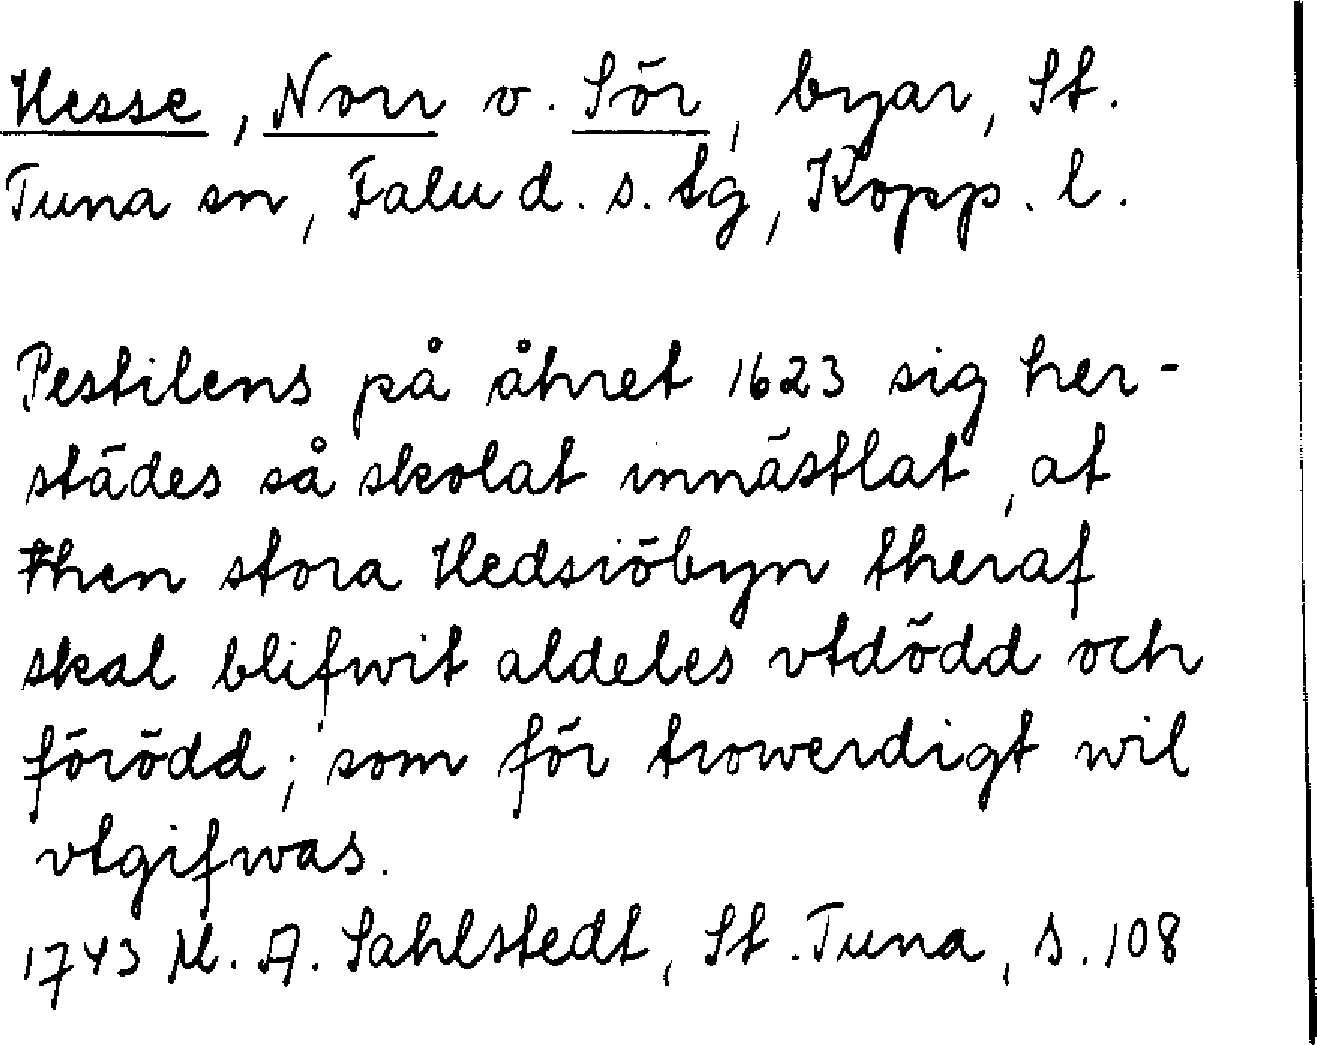 Hesse, Norr o. Sör, byar, St.
Tuna sn, Falu d. s. tg, Kopp. l.
Pestilens på åhret 1623 sig her-
städes så skolat innästlat, at
then stora Hedsiöbyn theraf
skal blifwit aldeles vtdödd och
förödd; som för trowerdigt wil
vtgifwas.
1743 M. A. Sahlstedt, St. Tuna, s. 108